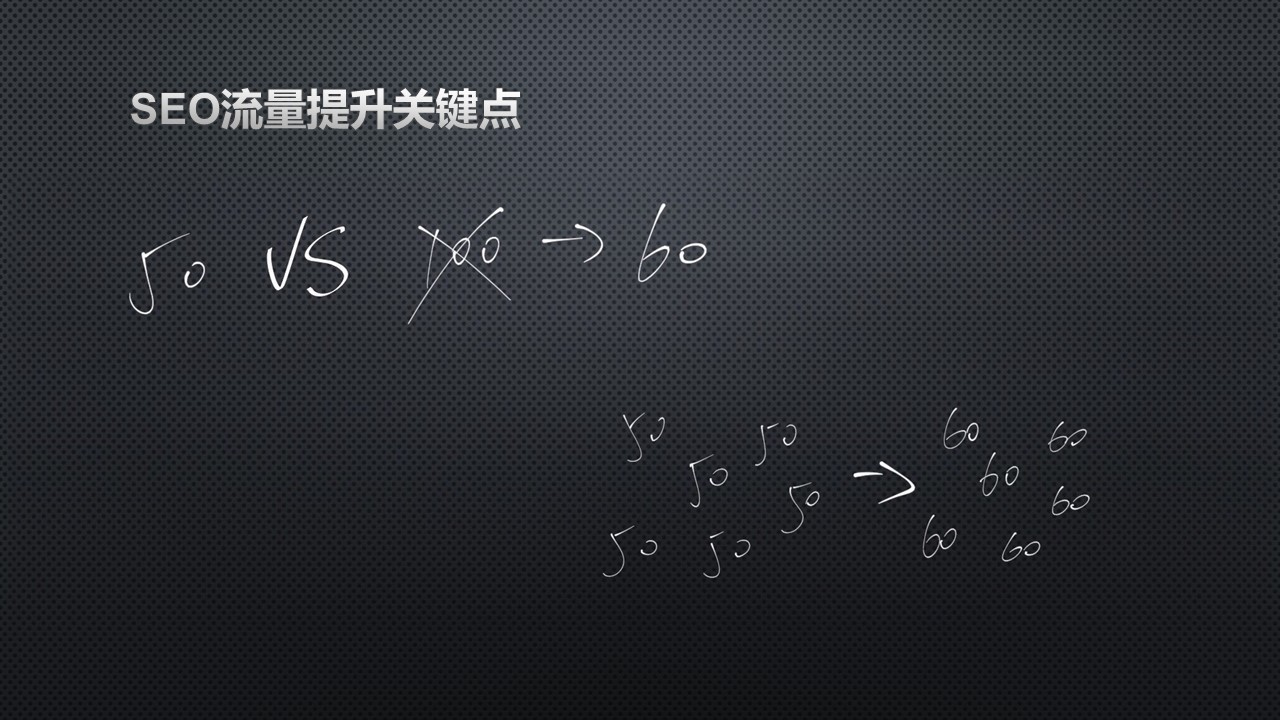 SEO流量提升关键点
50 VS 100 → 60
50 50 60 60
50 → 60
50 60
50 50 60 60